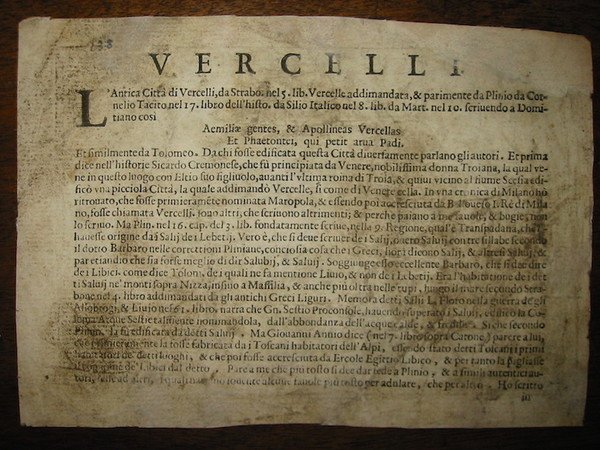 VERCELLI
L'Antica Città di Vercelli, da Strabo. nel 5. lib. Vercelle addimandata, & parimente da Plinio da Cor-
nelio Tacito nel 17. libro dell'histo. da Silio Italico nel 8. lib. da Mart. nel 10. scriuendo a Domi-
tiano così
Aemiliæ gentes, & Apollineas Vercellas
Et Phaetontei, qui petit arua Padi.
Et similmente da Tolomeo. Da chi fosse edificata questa Città diuersamente parlano gli autori. Et prima
dice nell'historie Sicardo Cremonese, che fù principiata da Venere, nobilissima donna Troiana, la qual ven-
ne in questo luogo con Elcio suo figliuolo, auanti l'vltima roina di Troia, & quiui vicino al fiume edi-
ficò vna picciola Città, la quale addimandò Vercelle, si come di Venere cella. In vna cronica di Milano hò
ritrouato, che fosse primieramēte nominata Maropola, & essendo poi accresciuta da I. Rè di Mila
no, fosse chiamata Vercelli. sono altri, che scriuono altrimenti; & perche paiano a me fauole, & bugie, non
lo scriuo. Ma Plin. nel 16. cap. del 3. lib. fondatamente scriue, nella 9. Regione, qual'è Transpadana, che
hauesse origine da i Salij de i Lebetij. Vero è, che si deue scriuer de i Salij, ouero Saluij con tre sillabe secondo
il dotto Barbaro nelle correttioni Pliniane, conciosia cosa che i Greci, hor i dicono Salij, & altresì Saluij, &
par etiandio che sia forse meglio di dir Salubij, & Saluij. Soggiunge esso eccellente Barbaro, che si dee dire
de i Libici. come dice Tolom. de i quali ne fa mentione Liuio, & non de i Lebetij. Era l'habitatione de i det-
ti Saluij ne' monti sopra Nizza, insino a Massilia, & anche più oltra nelle rupi, lungo il mare secondo Strabo-
ne nel 4. libro addimandati da gli antichi Greci Liguri. Memora detti Salij L. Floro nella guerra de gli
Allobrogi, & Liuio nel 61. libro, narra che Gn. Sestio Proconsole, hauendo superato i Saluij, edificò la Co-
lonia Acque Sestie talmente nominandola, dall'abbondanza dell'acque calde, & fredde. Si che secondo
Plinio, fù edificata da detti Saluij. Ma Giouanni Annio dice (nel 7. libro sopra Catone) parere a lui,
che primieramente la fosse fabricata da i Toscani habitatori dell'Alpi, essendo stato detti Toscani primi
habitatori de' detti luoghi, & che poi fosse accresciuta da Ercole Egittio Libico, & per tanto la pigliasse
il cognome de' Libici dal detto. Pare a me che più tosto si dee dar fede a Plinio, & a simili autentici au-
tori, che ad altri, più tosto per adulare, che per altro. Ho scritto